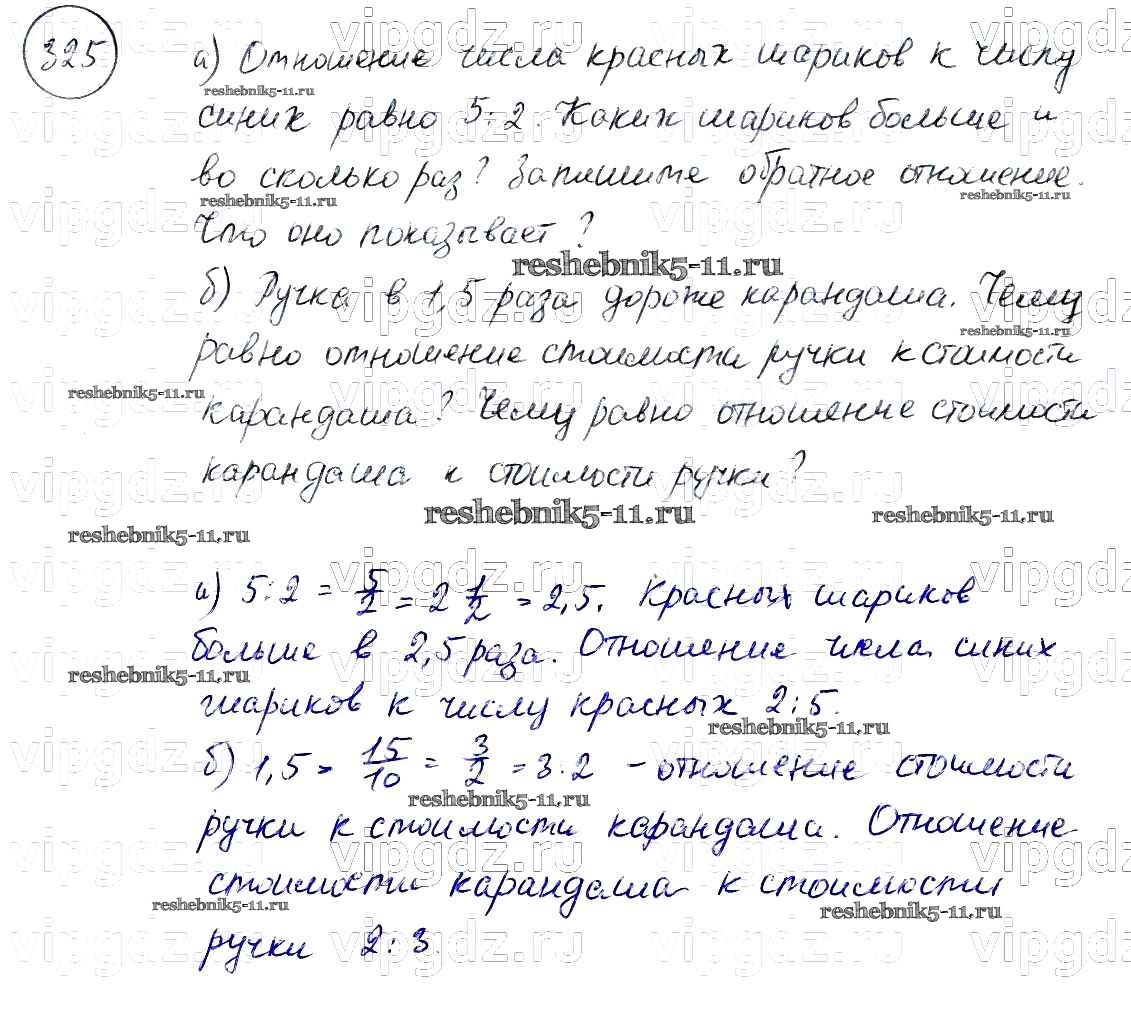 325
а) Отношение числа красных шариков к числу
синих равно 5:2. Каких шариков больше и
во сколько раз? Запишите обратное отношение.
Что оно показывает?
б) Ручка в 1,5 раза дороже карандаша. Чему
равно отношение стоимости ручки к стоимости
карандаша? Чему равно отношение стоимости
карандаша к стоимости ручки?
а) 5:2 = 5/2 = 2 1/2 = 2,5. Красных шариков
больше в 2,5 раза. Отношение числа синих
шариков к числу красных 2:5.
б) 1,5 = 15/10 = 3/2 = 3:2 – отношение стоимости
ручки к стоимости карандаша. Отношение
стоимости карандаша к стоимости
ручки 2:3.
vipgdz.ru
reshebnik5-11.ru